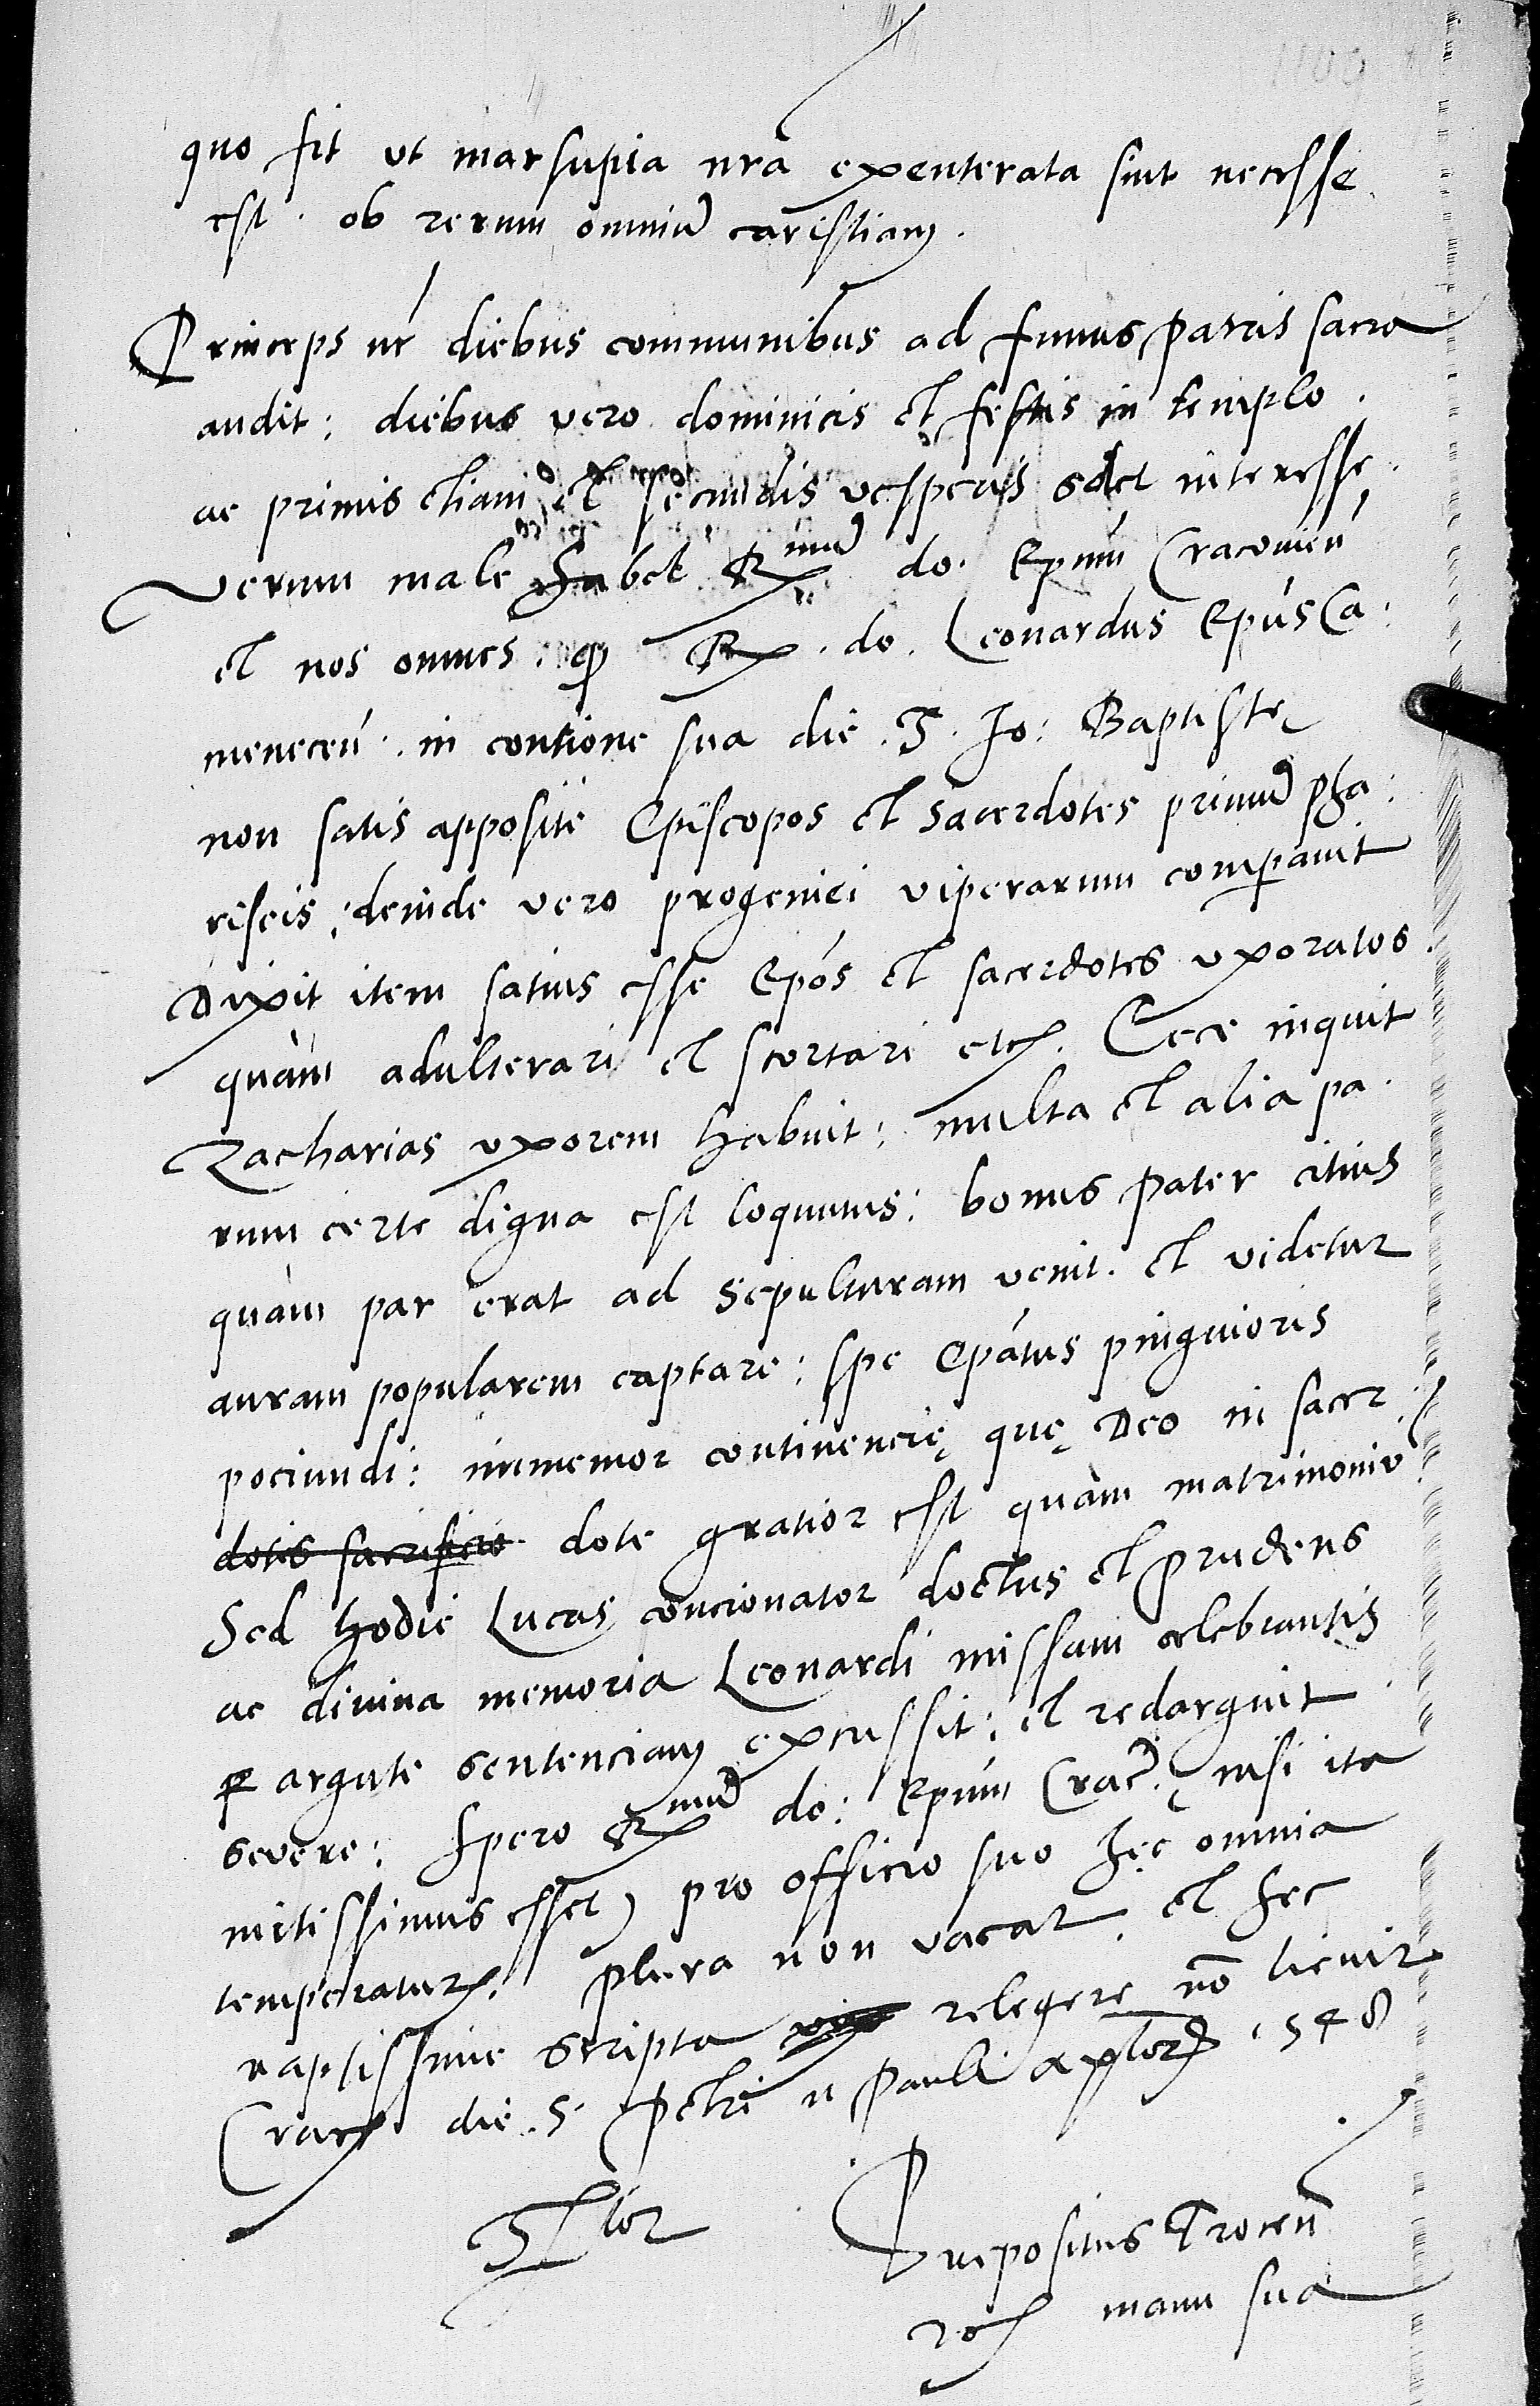 quo fit ut marsupia nrã expenterata sint necesse
est. ob rerum omniũ caristiam.
Princeps nr̃ diebus communibus ad funus patris sacra
audit: diebus vero dominicis et festis in templo.
ac primis etiam et secundis vesperis solet interesse.
Verum male habet Rmũ do. Epũm Cracovieñ
et nos omnes. ꝙ R. do. Leonardus Epũs Ca:
meneceñ. in contione sua die S. Jo: Baptistę
non satis apposite Episcopos et sacerdotes primũ pha:
riseis; deinde vero progeniei viperarum comparavit
Dixit item satius esse Epõs et sacerdotes uxoratos.
quàm adulterari et scortari etc. Ecce inquit
Zacharias uxorem habuit: multa et alia pa.
rum certe digna est loquutus: bonus pater citius
quàm par erat ad sepulturam venit. et videtur
auram popularem captare: spe Epãtus pinguioris
pociundi: immemor continencię quę Deo in sacer:
dotis sacrificio dote gratior est quàm matrimoniũ
Sed hodie Lucas concionator doctus et prudens
ac divina memoria Leonardi missam celebrantis
ꝑ argute sentenciam excussit: et redarguit
severe: Spero Rmũ do: Epũm Crac. nisi ita
mitissimus esset) pro officio suo hęc omnia
temperatur. plura non vacat. et hec
raptissime scripta relegere nõ licuit
Crac die. S. Petri n Pauli aplorꝫ 1548
Prepositus Troceñ
manu sua